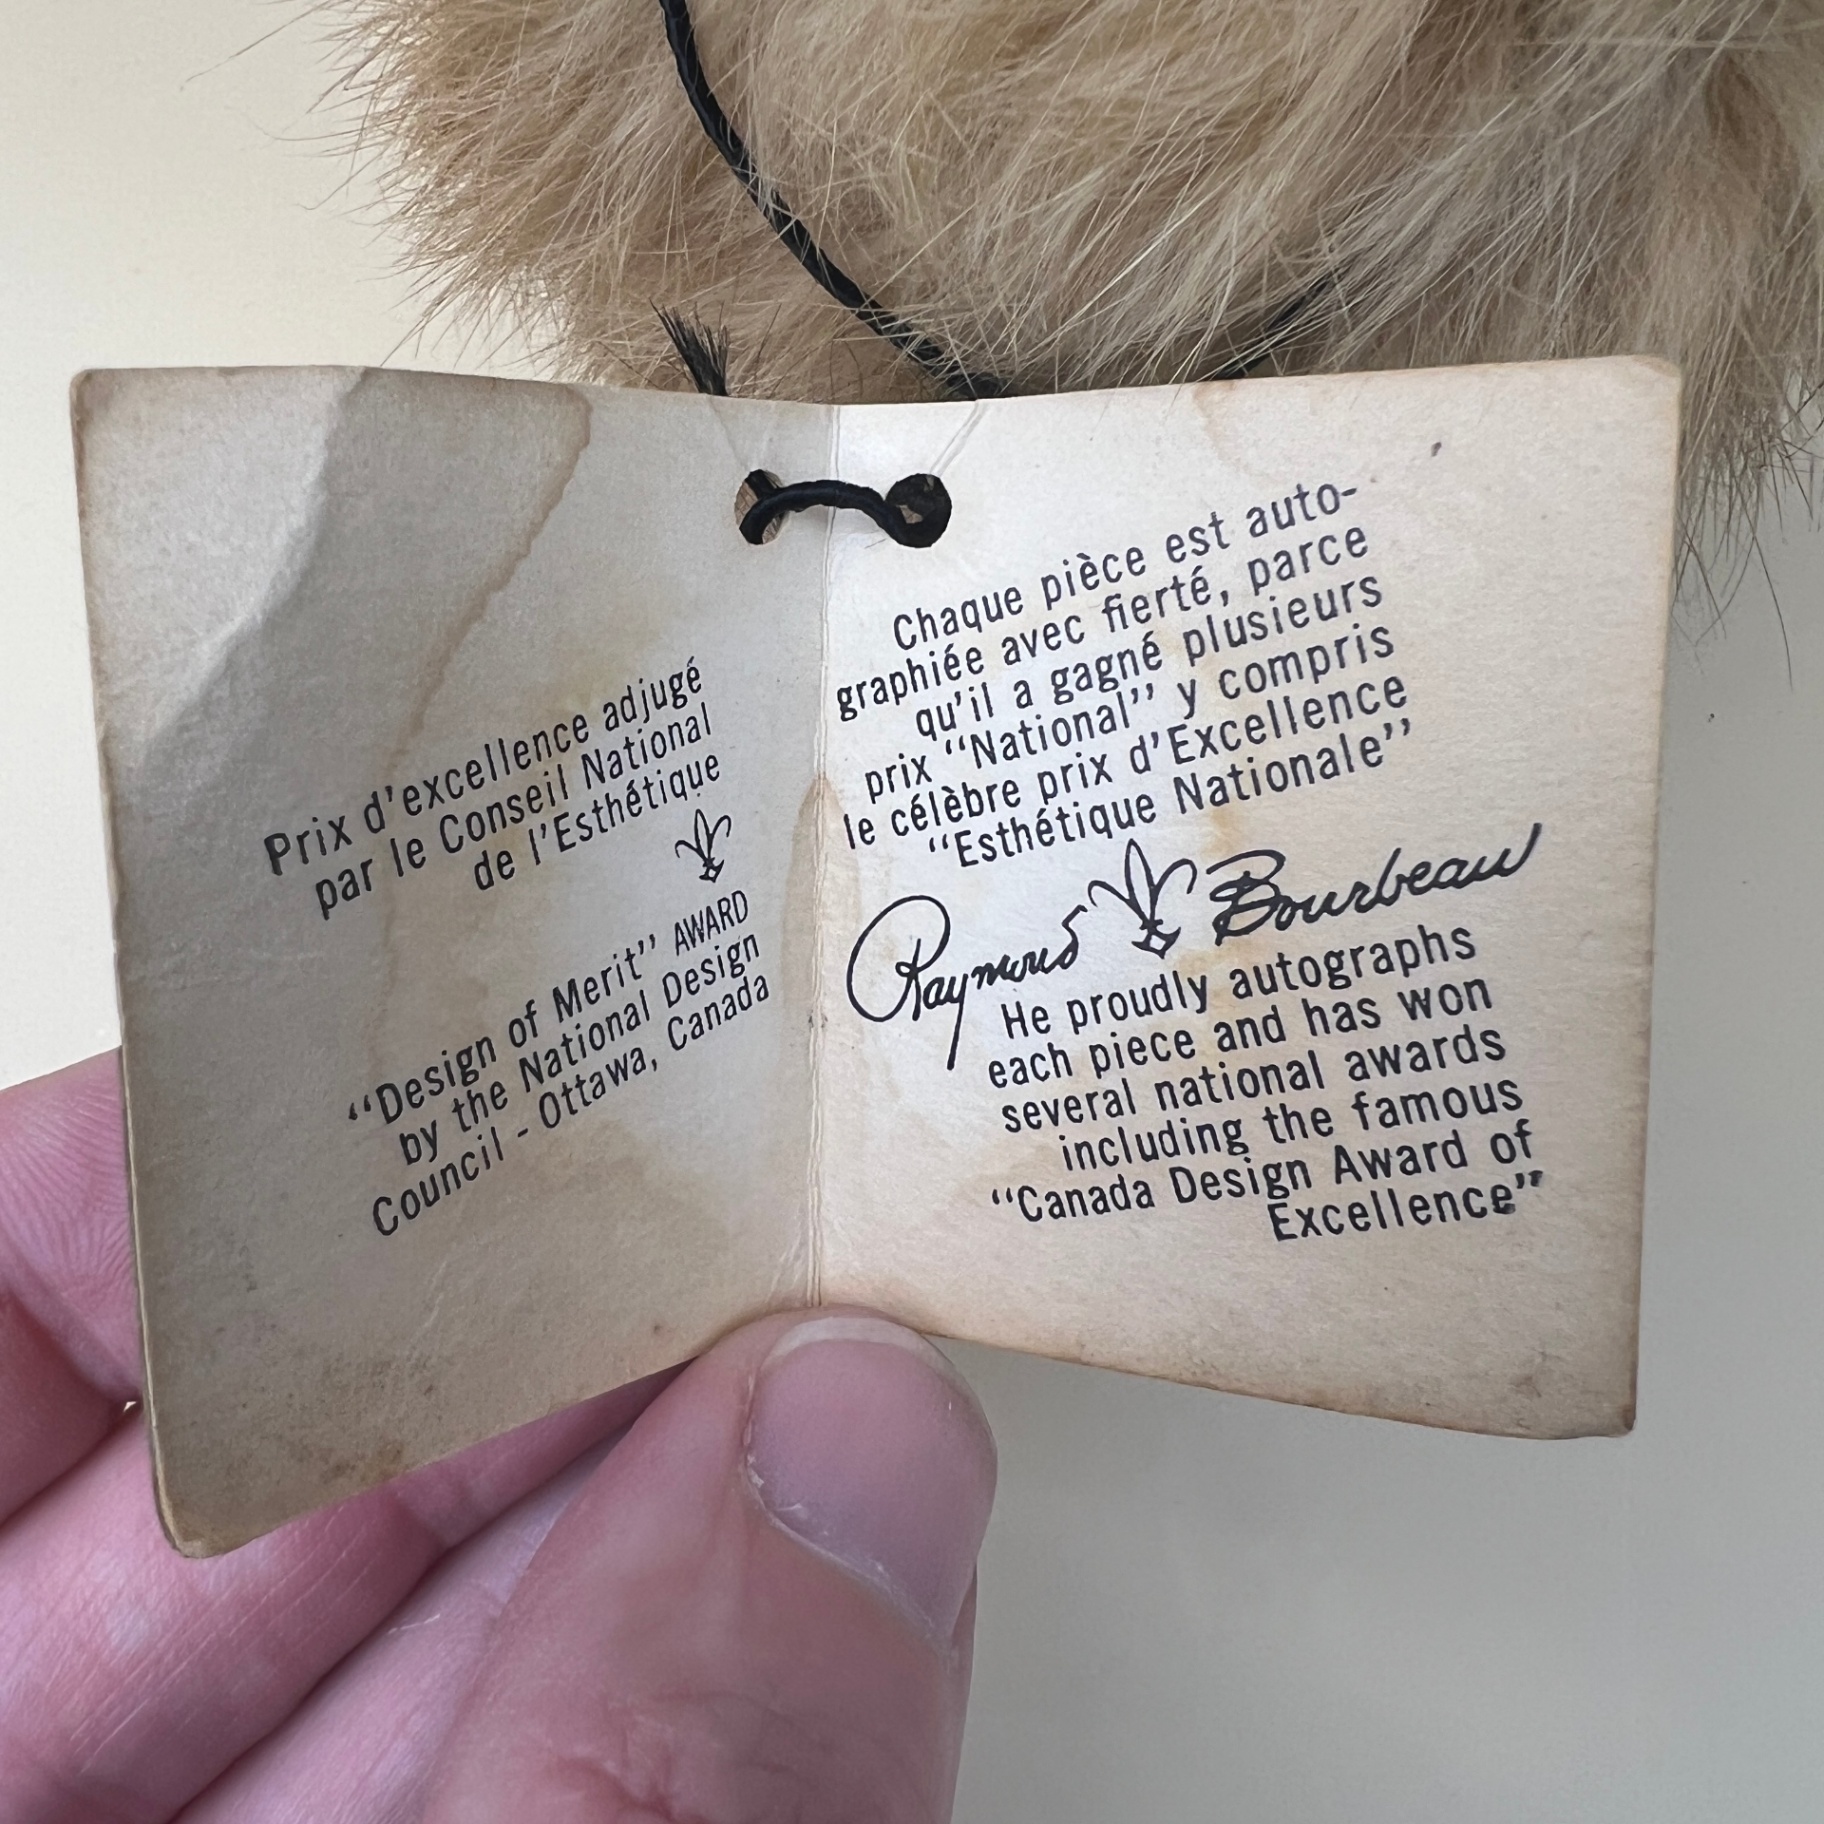 Prix d'excellence adjugé
par le Conseil National
de l'Esthétique
"Design of Merit" AWARD
by the National Design
Council - Ottawa, Canada
Chaque pièce est auto-
graphiée avec fierté, parce
qu'il a gagné plusieurs
prix "National" y compris
le célèbre prix d'Excellence
"Esthétique Nationale"
Raymond Bourbeau
He proudly autographs
each piece and has won
several national awards
including the famous
"Canada Design Award of
Excellence"